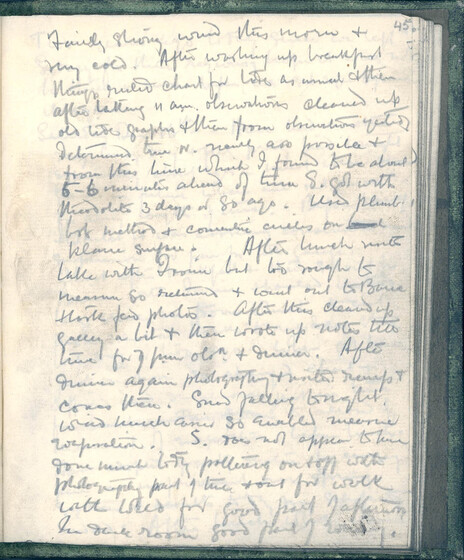 45.
Fairly strong wind this morn &
very cold. After washing up breakfast
things ruled chart for tide as usual & then
after taking 11 a.m. observations cleaned up
old tide graphs & then from observations
determined time or nearly as possible &
from this time which I found to be about
5-6 minutes ahead of time S. got with
theodolite 3 days or so ago. Used plumb
bob method & concentric circles on
plane surface. After lunch went
lake with Irvine but too rough to
measure so returned & went out to
& took few photos. After this cleaned up
a bit & then wrote up notes till
time for 7 pm obsn & dinner. After
dinner again photography & visited
. Snow falling tonight.
Wind much so enabled measure
evaporation. S. does not appear to have
done much today on & off with
photography part of time & out for work
with for good part of afternoon
In dark room good part of